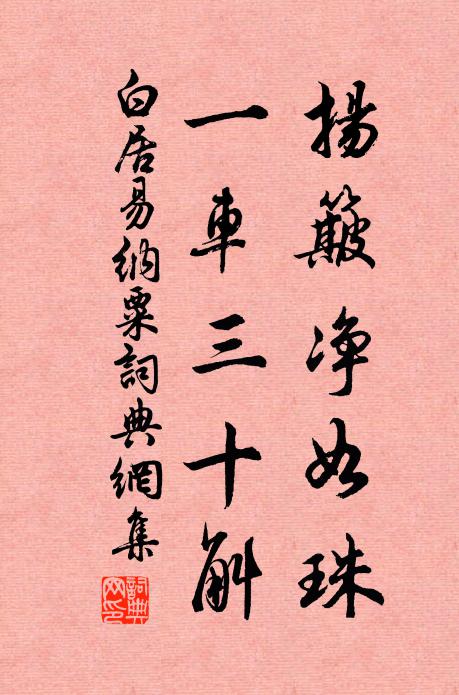 揚簸净如珠
一車三十斛
白居易納粟詞典網集
詞典網印